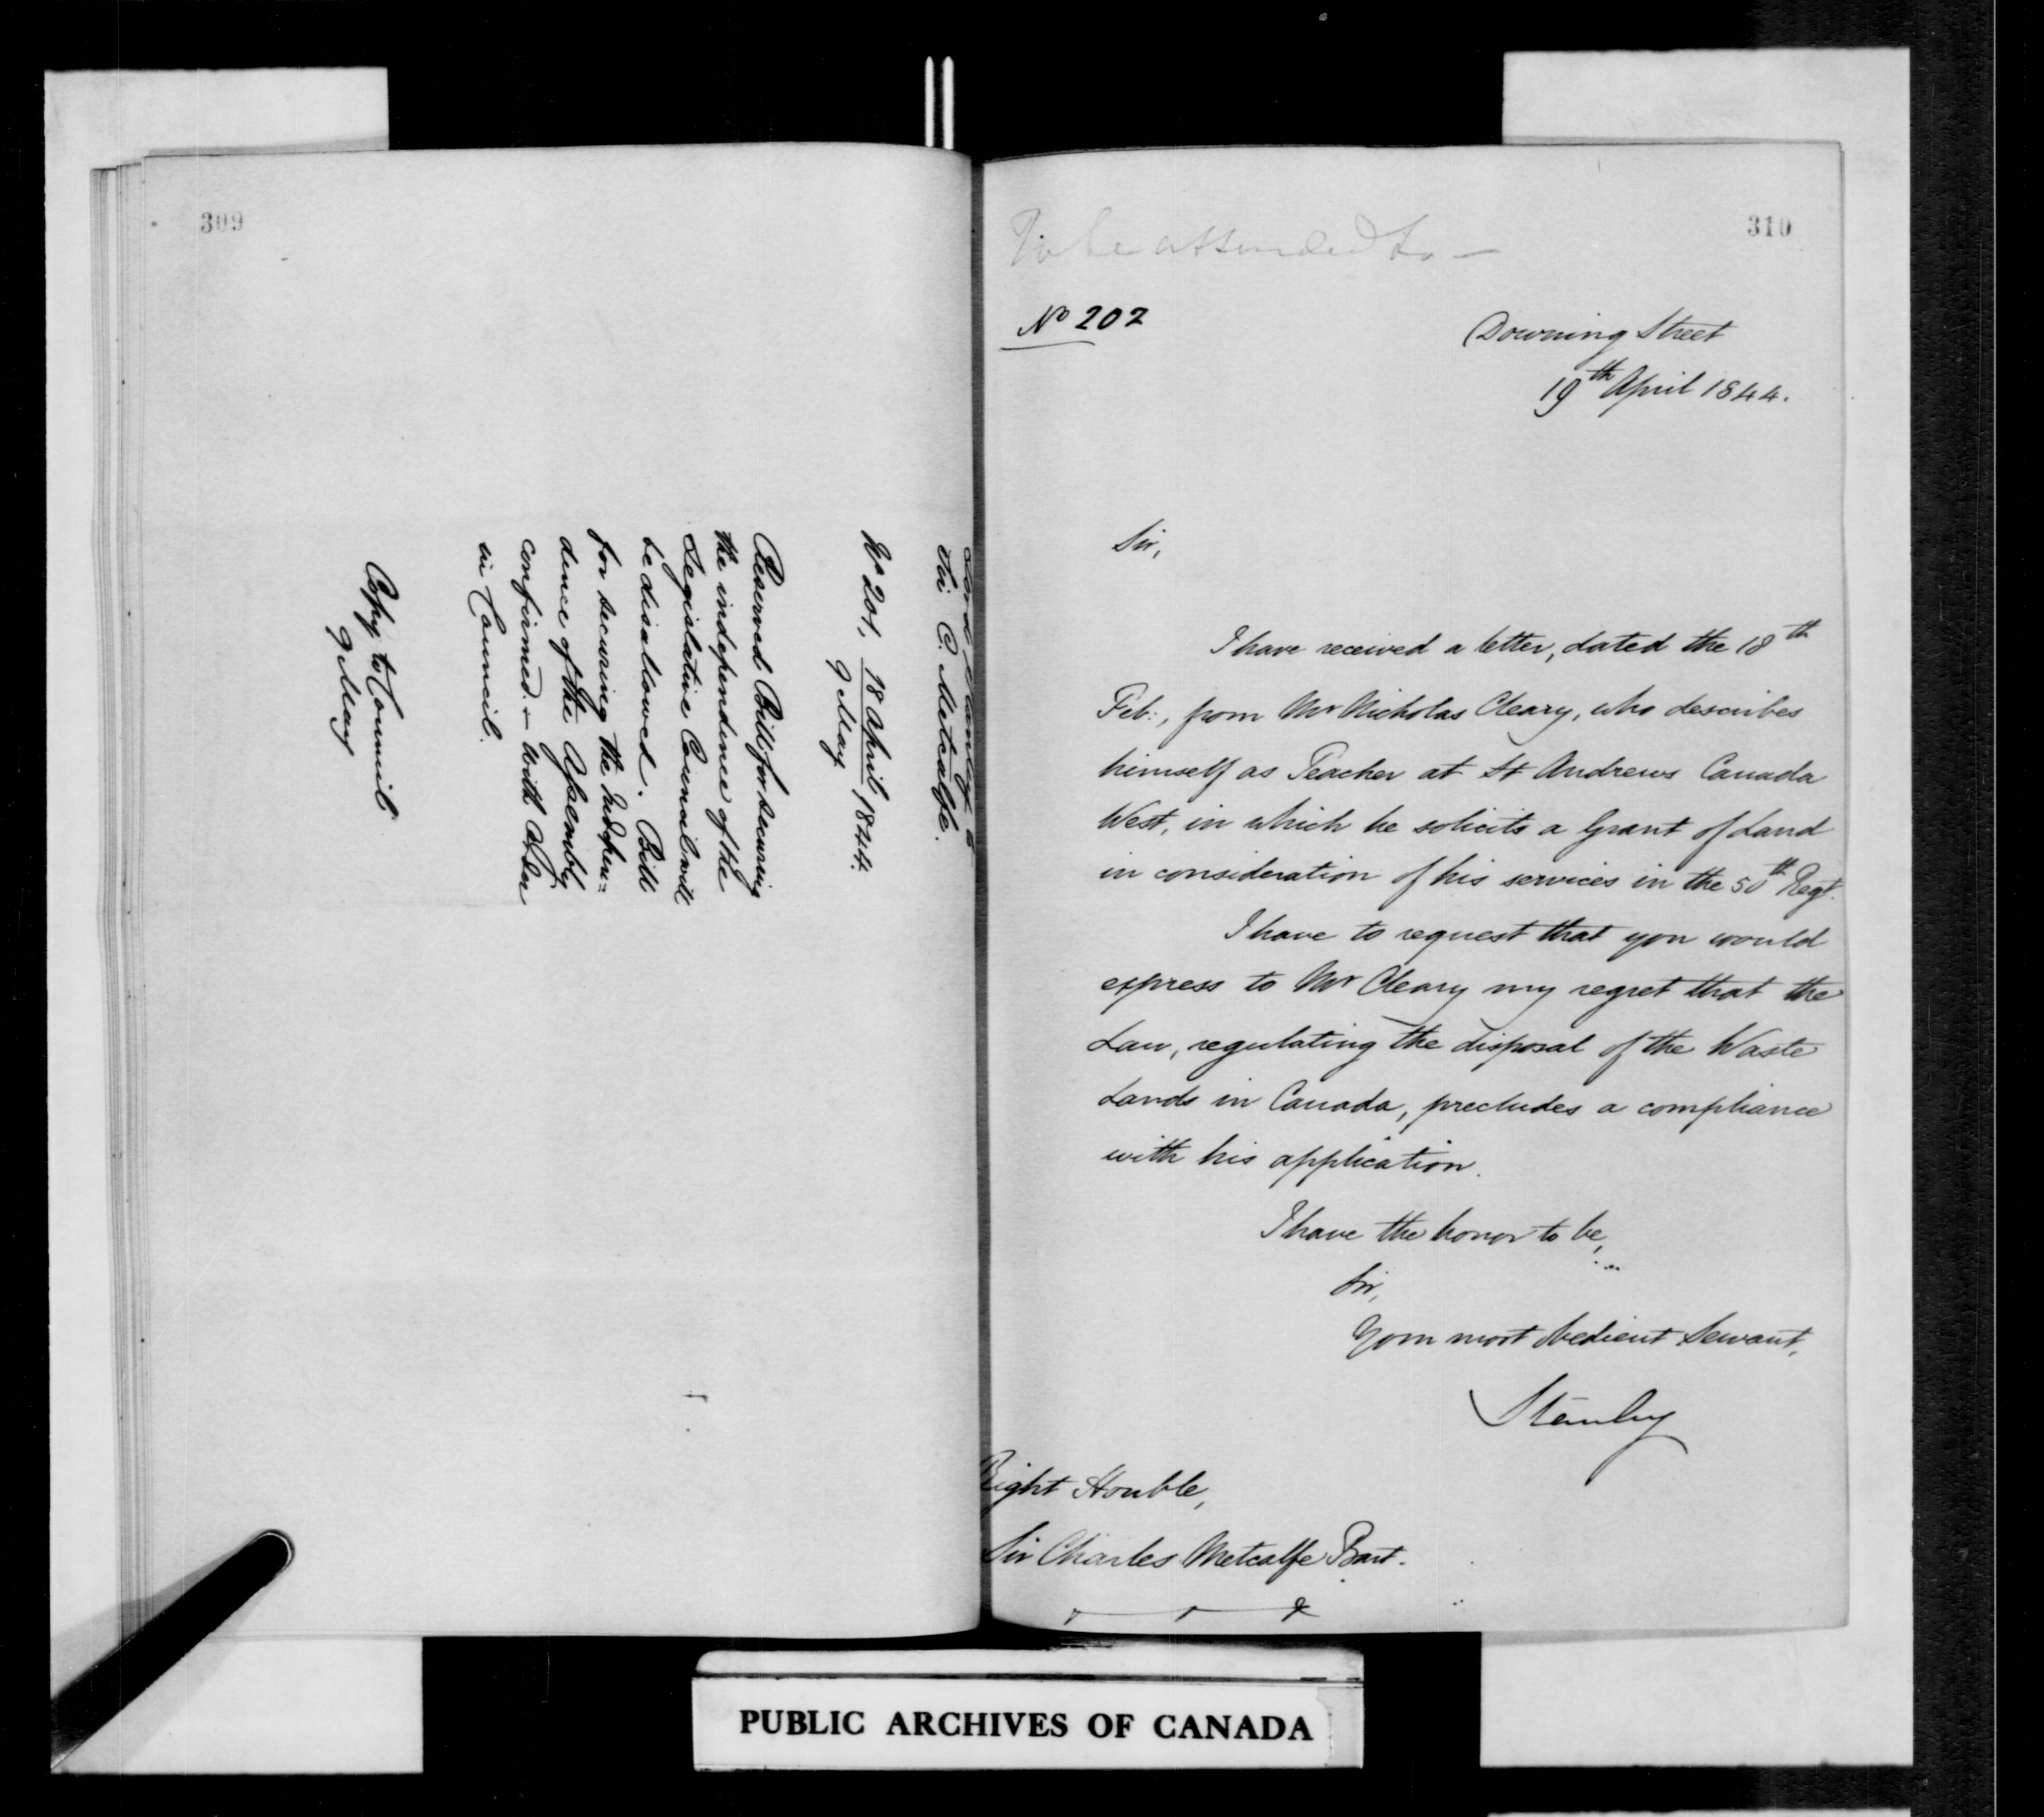 309
Lord Stanley to
Sir C. Metcalfe.
No 201, 18 April 1844.
9 May
Reserved Bill for securing
the independence of the
Legislative Council will
be disallowed. Bill
for securing the Indepen=
dence of the Assembly
confirmed - with Order
in Council.
Copy to Council
9 May
310
To be attended to —
No 202
Downing Street
19th April 1844.
Sir,
I have received a letter, dated the 18th
Feb:, from Mr Nicholas Cleary, who describes
himself as Teacher at St Andrews Canada
West, in which he solicits a Grant of Land
in consideration of his services in the 50th Regt.
I have to request that you would
express to Mr Cleary my regret that the
Law, regulating the disposal of the Waste
Lands in Canada, precludes a compliance
with his application.
I have the honor to be,
Sir,
Your most obedient Servant,
Stanley
Right Honble,
Sir Charles Metcalfe Bart.
PUBLIC ARCHIVES OF CANADA